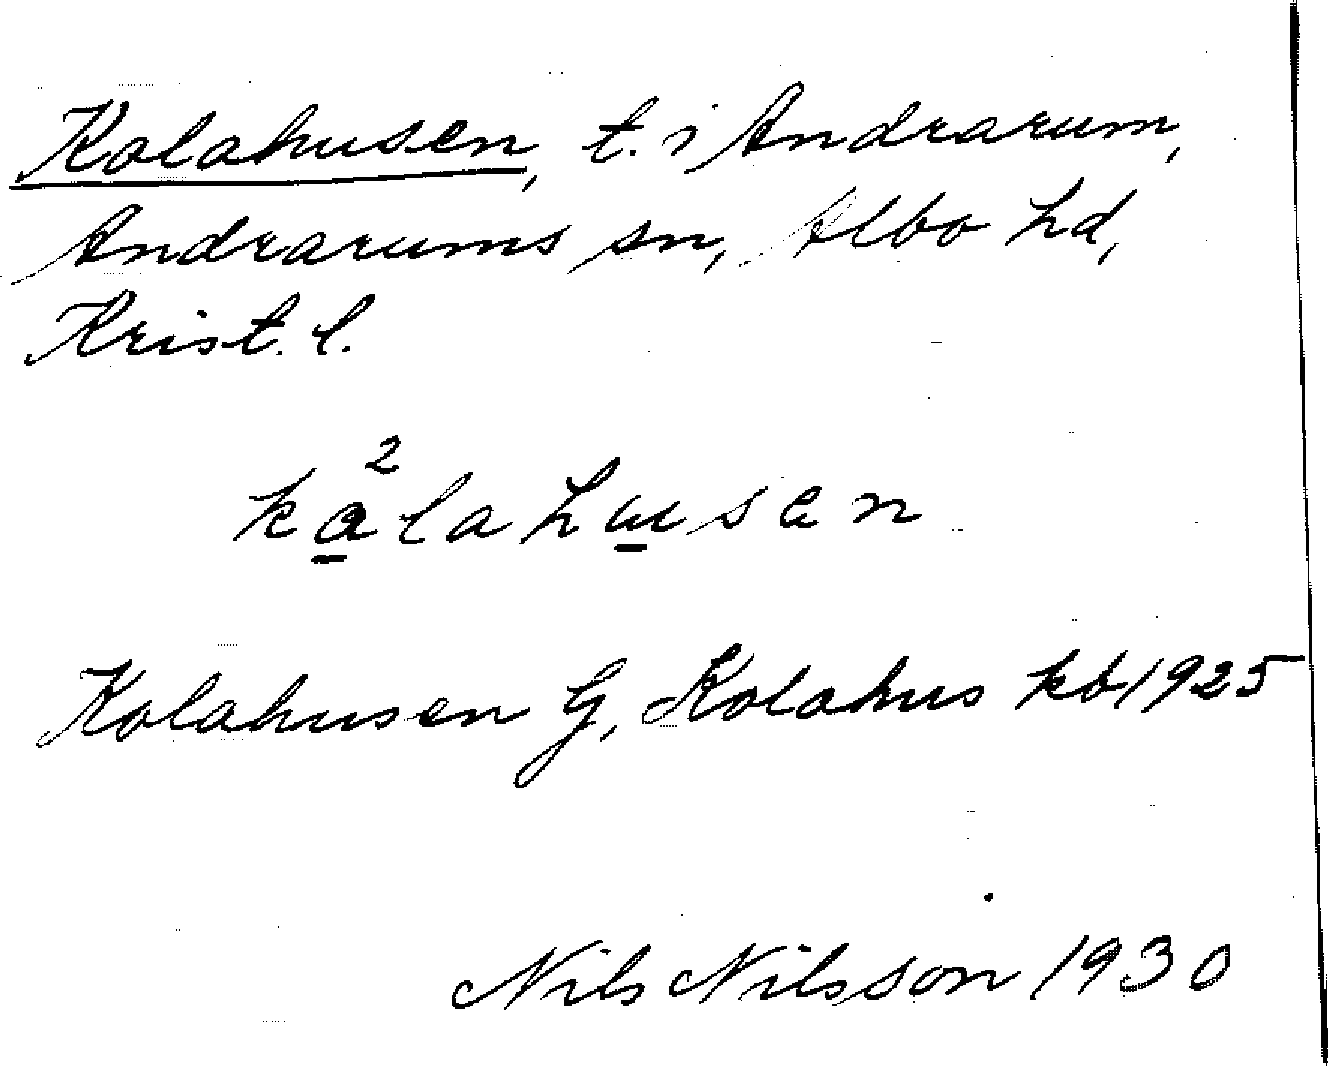 Kolahusen, t. i Andrarum,
Andrarums sn, Albo hd,
Krist. l.
kå²lahusen
Kolahusen G, Kolahus kb 1925
Nils Nilsson 1930